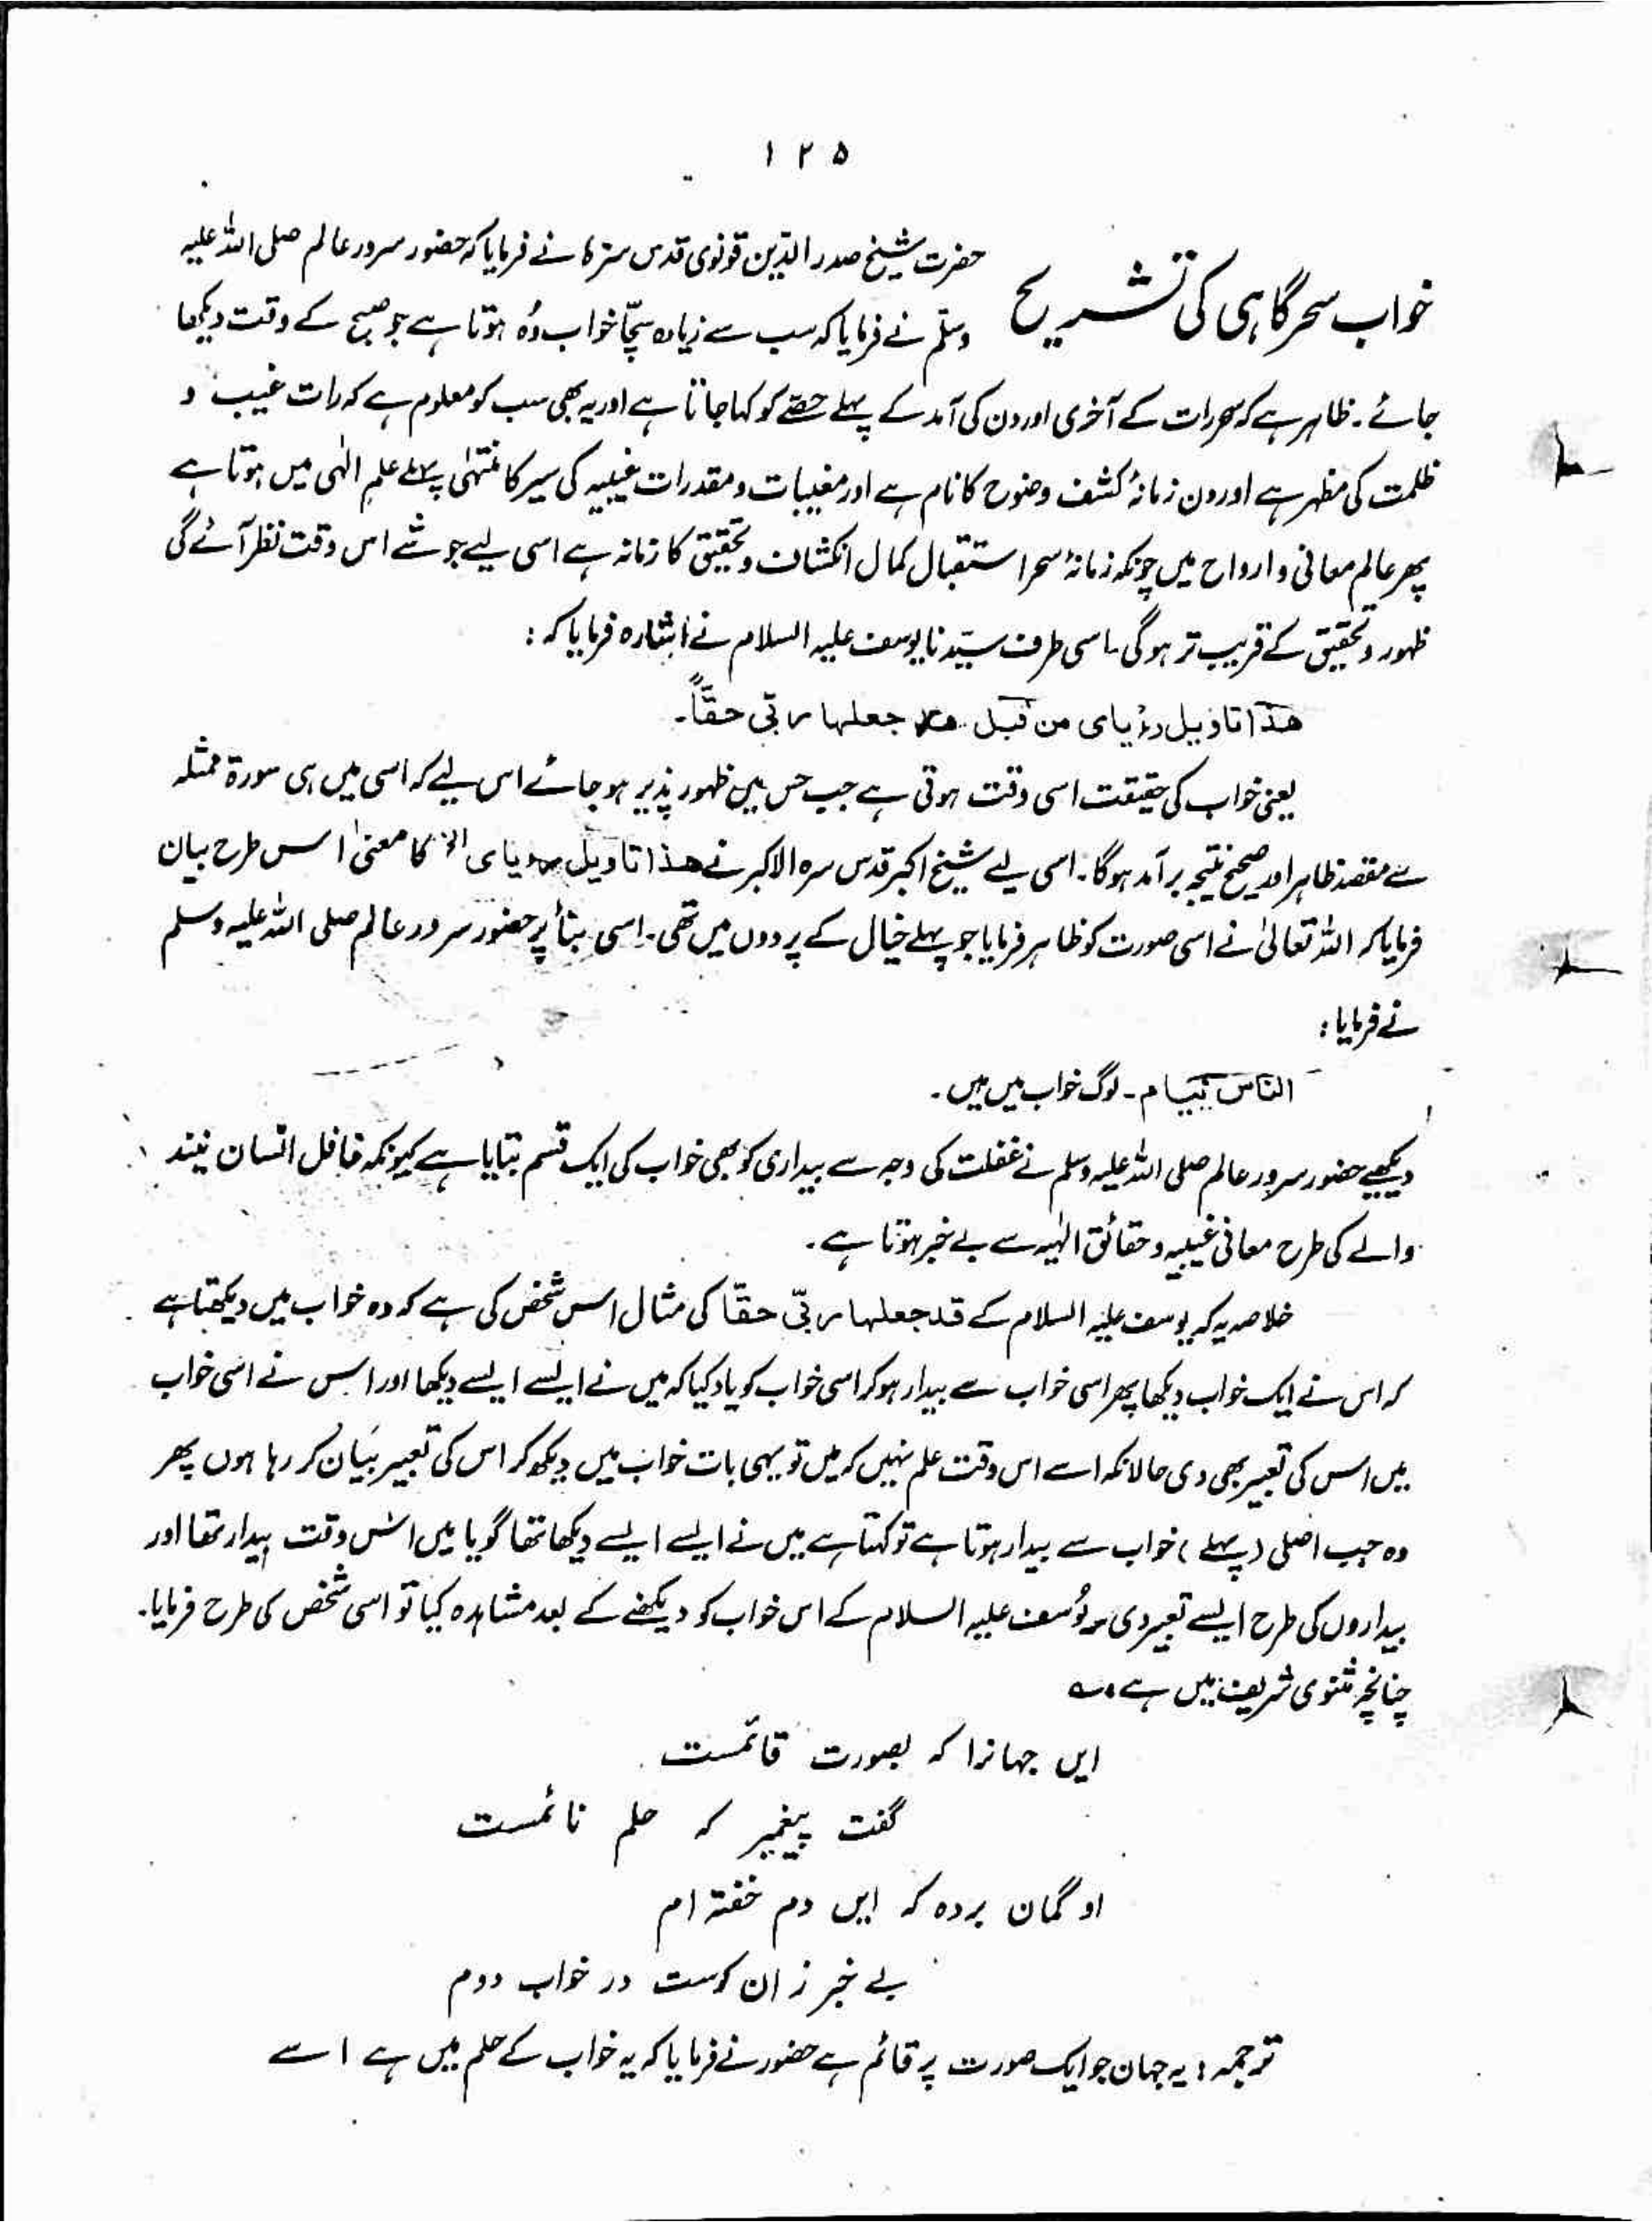 ۱۲۵
خواب سحرگاہی کی تشریح
حضرت شیخ صدر الدّین قونوی قدس سرہٗ نے فرمایا کہ حضور سرور عالم صلی اللہ علیہ
وسلّم نے فرمایا کہ سب سے زیادہ سچّا خواب وُہ ہوتا ہے جو صبح کے وقت دیکھا
جائے۔ ظاہر ہے کہ سحر رات کے آخری اور دن کی آمد کے پہلے حصّے کو کہا جاتا ہے اور یہ بھی سب کو معلوم ہے کہ رات غیب و
ظلمت کی مظہر ہے اور دن زمانۂ کشف و وضوح کا نام ہے اور مغیبات و مقدرات غیبیہ کی سیر کا منتہٰی پہلے علم الٰہی میں ہوتا ہے
پھر عالم معانی و ارواح میں چونکہ زمانۂ سحر استقبال کمال انکشاف و تحقیق کا زمانہ ہے اسی لیے جو شے اس وقت نظر آئے گی
ظہور و تحقیق کے قریب تر ہوگی۔ اسی طرف سیّدنا یوسف علیہ السلام نے اشارہ فرمایا کہ :
ھذا تاویل رءیای من قبل قد جعلھا ربّی حقّاً۔
یعنی خواب کی حقیقت اسی وقت ہوتی ہے جب حس میں ظہور پذیر ہو جائے اس لیے کہ اسی میں ہی صورۃ ممثلہ
سے مقصد ظاہر اور صحیح نتیجہ برآمد ہوگا۔ اسی لیے شیخ اکبر قدس سرہ الاکبر نے ھذا تاویل رءیای الخ کا معنیٰ اس طرح بیان
فرمایا کہ اللہ تعالیٰ نے اسی صورت کو ظاہر فرمایا جو پہلے خیال کے پردوں میں تھی۔ اسی بنأ پر حضور سرور عالم صلی اللہ علیہ وسلم
نے فرمایا :
النّاس نیام ۔ لوگ خواب میں ہیں ۔
دیکھیے حضور سرور عالم صلی اللہ علیہ وسلم نے غفلت کی وجہ سے بیداری کو بھی خواب کی ایک قسم بتایا ہے کیونکہ غافل انسان نیند
والے کی طرح معانی غیبیہ و حقائق الٰہیہ سے بے خبر ہوتا ہے ۔
خلاصہ یہ کہ یوسف علیہ السلام کے قد جعلھا ربّی حقّا کی مثال اس شخص کی ہے کہ وہ خواب میں دیکھتا ہے
کہ اس نے ایک خواب دیکھا پھر اسی خواب سے بیدار ہو کر اسی خواب کو یاد کیا کہ میں نے ایسے ایسے دیکھا اور اس نے اسی خواب
میں اس کی تعبیر بھی دی حالانکہ اسے اس وقت علم نہیں کہ میں تو یہی بات خواب میں دیکھ کر اس کی تعبیر بیان کر رہا ہوں پھر
وہ جب اصلی (پہلے) خواب سے بیدار ہوتا ہے تو کہتا ہے میں نے ایسے ایسے دیکھا تھا گویا میں اس وقت بیدار تھا اور
بیداروں کی طرح ایسے تعبیر دی یوُسف علیہ السلام کے اس خواب کو دیکھنے کے بعد مشاہدہ کیا تو اسی شخص کی طرح فرمایا۔
چنانچہ مثنوی شریف میں ہے : ؎
ایں جہانرا کہ بصورت قائمست
گفت پیغمبر کہ حلم نائمست
او گمان بردہ کہ ایں دم خفتہ ام
بے خبر زان کوست در خواب دوم
ترجمہ : یہ جہان جو ایک صورت پر قائم ہے حضور نے فرمایا کہ یہ خواب کے حلم میں ہے اسے